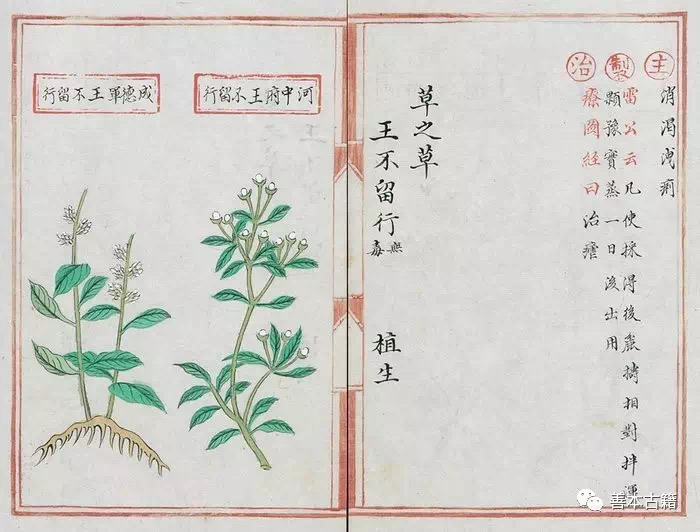 主
消渴洩痢
製
雷公云凡使採得後麄擣相對拌
顆豫實蒸一日後出用
治
療圖經曰治
草之草
王不留行無毒
植生
河中府王不留行
成德軍王不留行
善本古籍